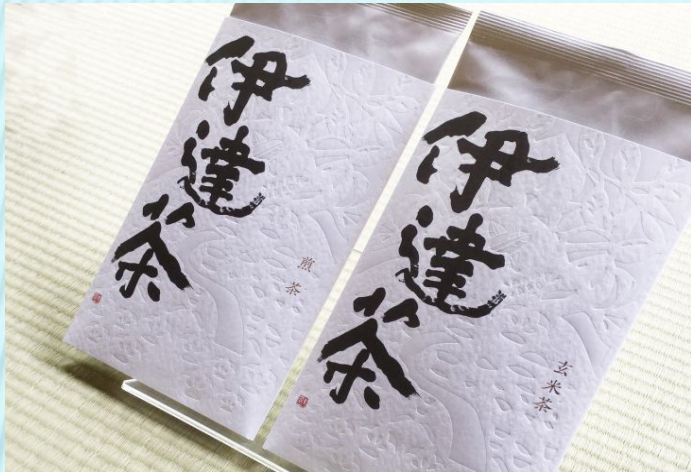 伊達茶
煎茶
伊達茶
玄米茶